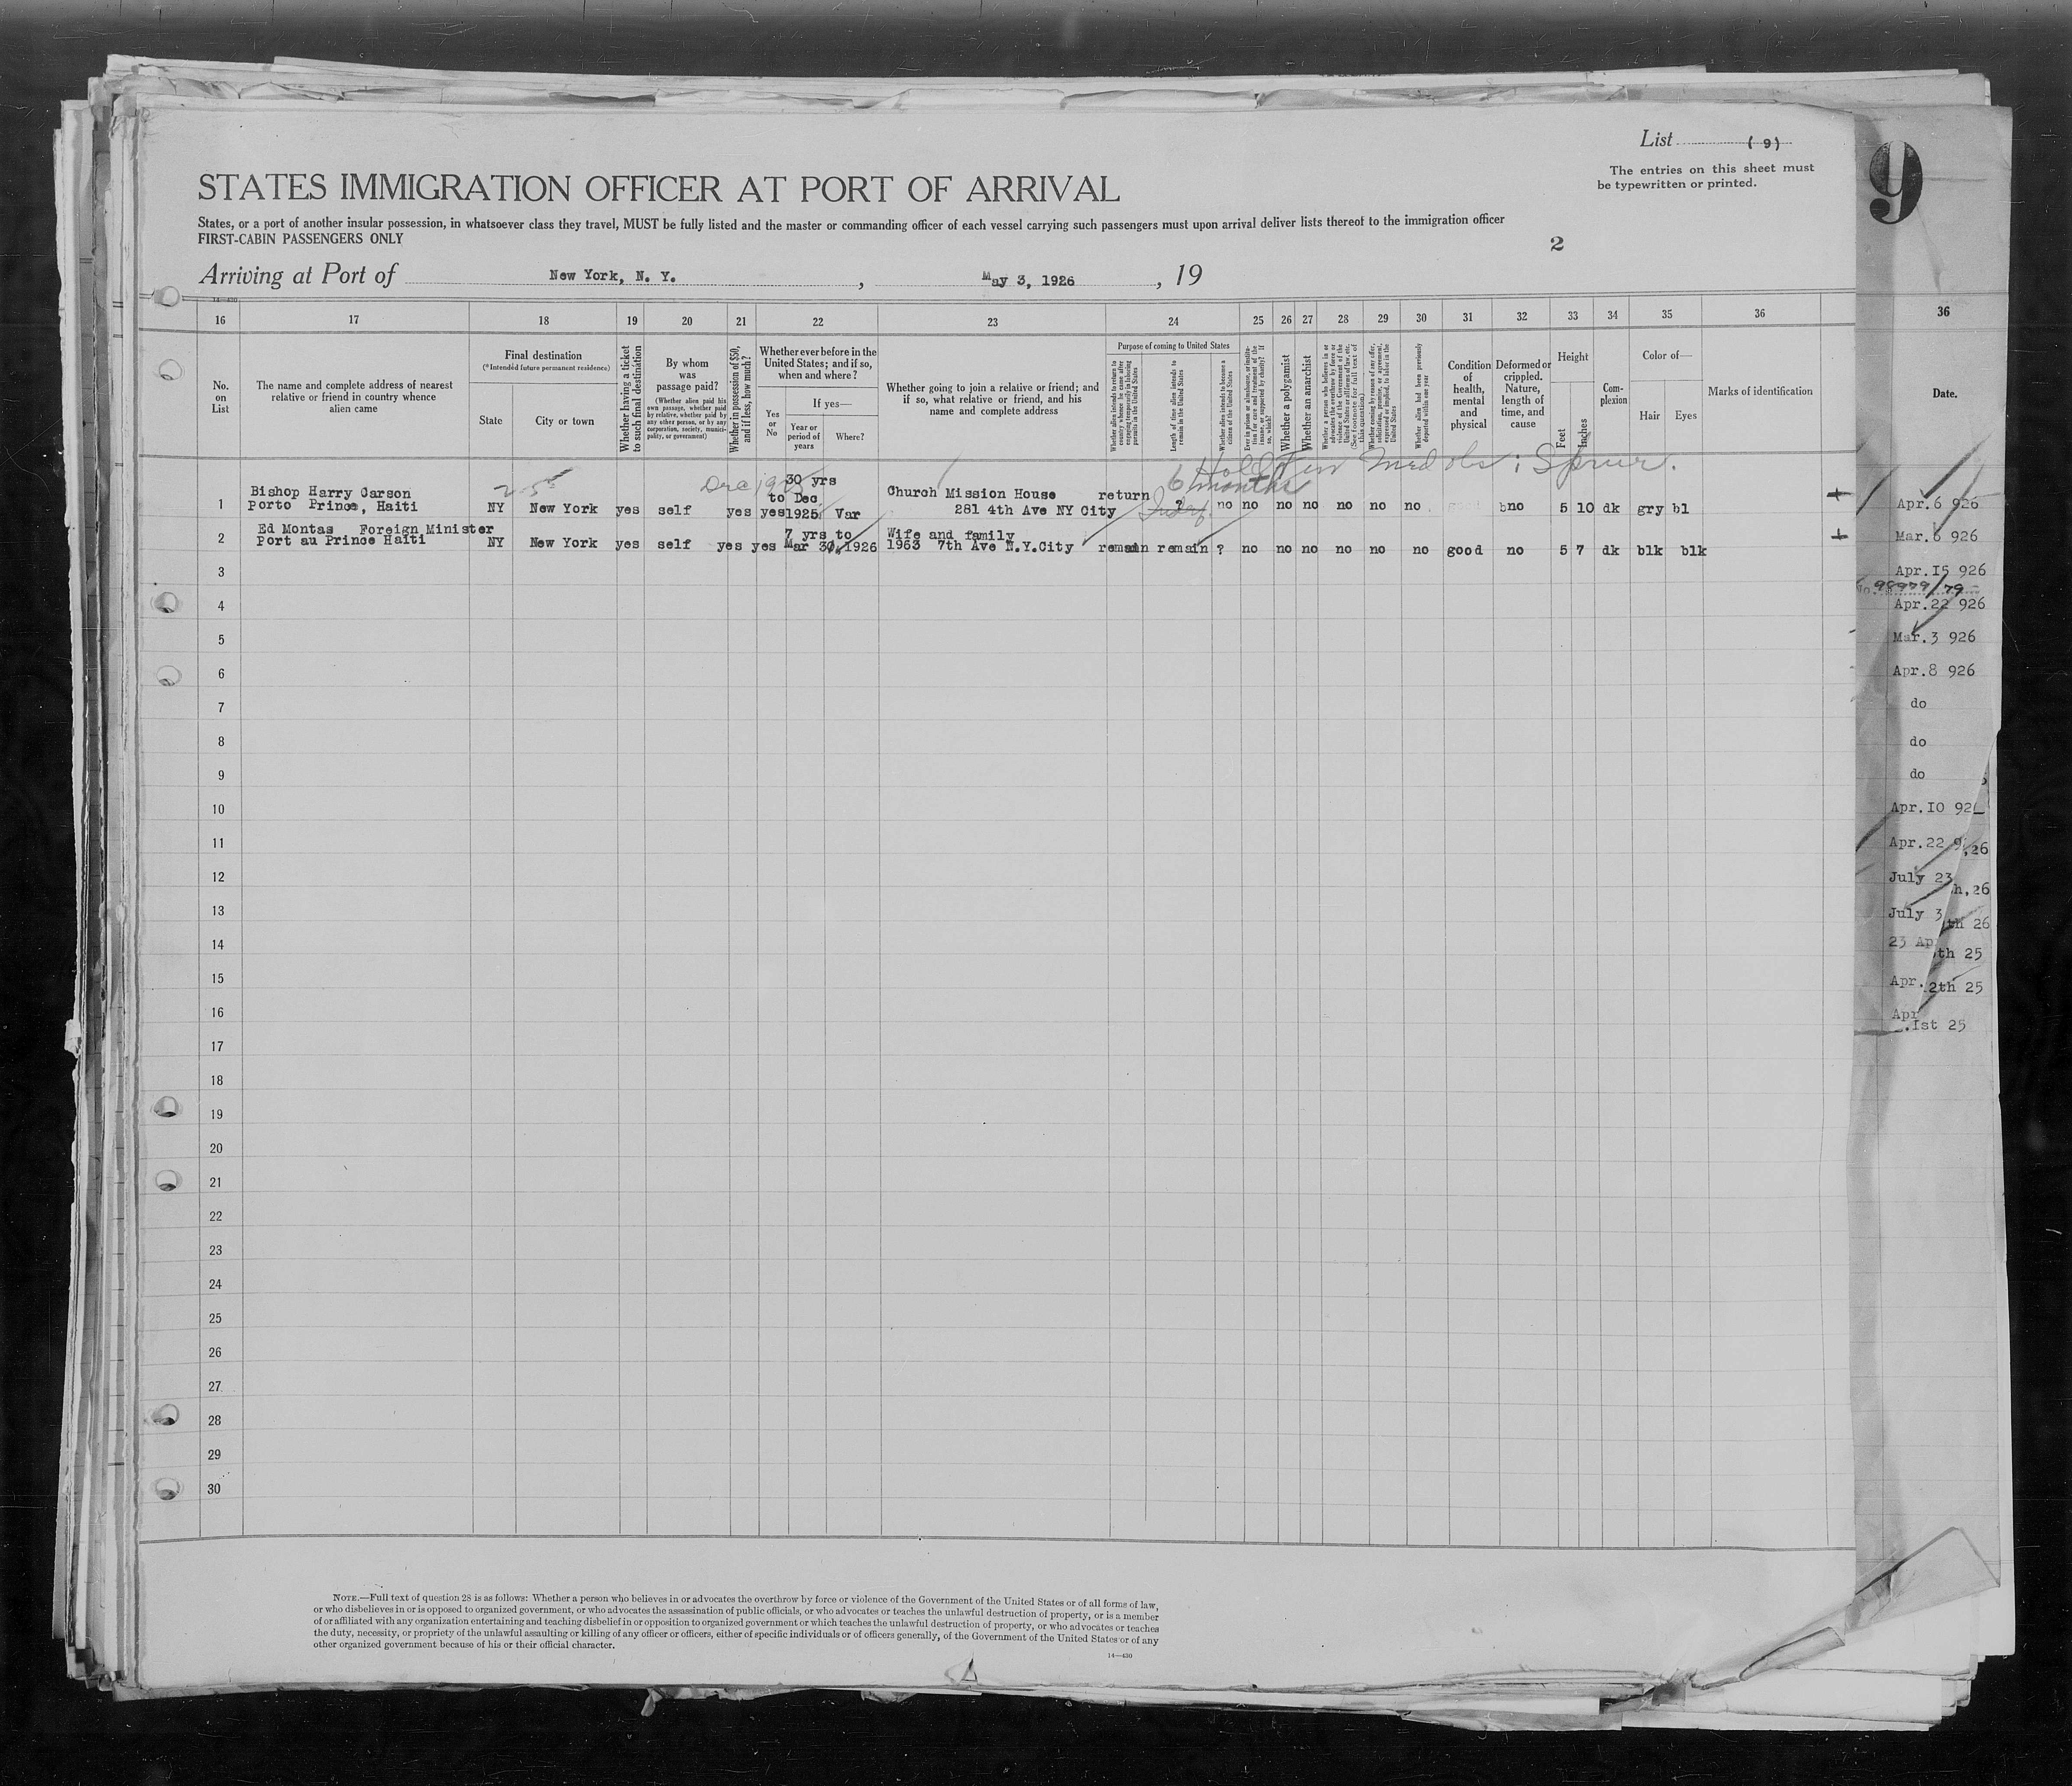 List ( 9)
The entries on this sheet must
be typewritten or printed.
9
STATES IMMIGRATION OFFICER AT PORT OF ARRIVAL
States, or a port of another insular possession, in whatsoever class they travel, MUST be fully listed and the master or commanding officer of each vessel carrying such passengers must upon arrival deliver lists thereof to the immigration officer
FIRST-CABIN PASSENGERS ONLY
2
Arriving at Port of New York, N. Y. , May 3, 1926 , 19
14—430
16 17 18 19 20 21 22 23 24 25 26 27 28 29 30 31 32 33 34 35 36
36
No. on List
The name and complete address of nearest relative or friend in country whence alien came
Final destination
(*Intended future permanent residence)
State
City or town
Whether having a ticket to such final destination
By whom was passage paid?
(Whether alien paid his own passage, whether paid by relative, whether paid by any other person, or by any corporation, society, municipality, or government)
Whether in possession of $50, and if less, how much?
Whether ever before in the United States; and if so, when and where?
Yes or No
If yes—
Year or period of years
Where?
Whether going to join a relative or friend; and if so, what relative or friend, and his name and complete address
Purpose of coming to United States
Whether alien intends to return to country whence he came after engaging temporarily in laboring pursuits in the United States
Length of time alien intends to remain in the United States
Whether alien intends to become a citizen of the United States
Ever in prison or almshouse, or institution for care and treatment of the insane, or supported by charity? If so, which?
Whether a polygamist
Whether an anarchist
Whether a person who believes in or advocates the overthrow by force or violence of the Government of the United States or all forms of law, etc. (See footnote for full text of this question)
Whether coming by reason of any offer, solicitation, promise, or agreement, expressed or implied, to labor in the United States
Whether alien had been previously deported within one year
Condition of health, mental and physical
Deformed or crippled. Nature, length of time, and cause
Height
Feet
Inches
Complexion
Color of—
Hair
Eyes
Marks of identification
Date.
Dec 192
6 months
1 Bishop Harry Carson
Porto Prince, Haiti NY New York yes self yes yes 30 yrs to Dec 1925 Var Church Mission House
281 4th Ave NY City return ? no no no no no no no good no 5 10 dk gry bl
2 Ed Montas Foreign Minister
Port au Prince Haiti NY New York yes self yes yes 7 yrs to Mar 30, 1926 Wife and family
1963 7th Ave N.Y.City remain remain ? no no no no no no good no 5 7 dk blk blk
3
4
5
6
7
8
9
10
11
12
13
14
15
16
17
18
19
20
21
22
23
24
25
26
27
28
29
30
Apr.6 926
Mar.6 926
Apr.15 926
98979/79
Apr.22 926
Mar.3 926
Apr.8 926
do
do
do
Apr.10 92
Apr.22 9 ,26
July 23 h,26
July 3 th 26
23 Ap th 25
Apr. 2th 25
Apr .1st 25
NOTE.—Full text of question 28 is as follows: Whether a person who believes in or advocates the overthrow by force or violence of the Government of the United States or of all forms of law,
or who disbelieves in or is opposed to organized government, or who advocates the assassination of public officials, or who advocates or teaches the unlawful destruction of property, or is a member
of or affiliated with any organization entertaining and teaching disbelief in or opposition to organized government or which teaches the unlawful destruction of property, or who advocates or teaches
the duty, necessity, or propriety of the unlawful assaulting or killing of any officer or officers, either of specific individuals or of officers generally, of the Government of the United States or of any
other organized government because of his or their official character.
14—430